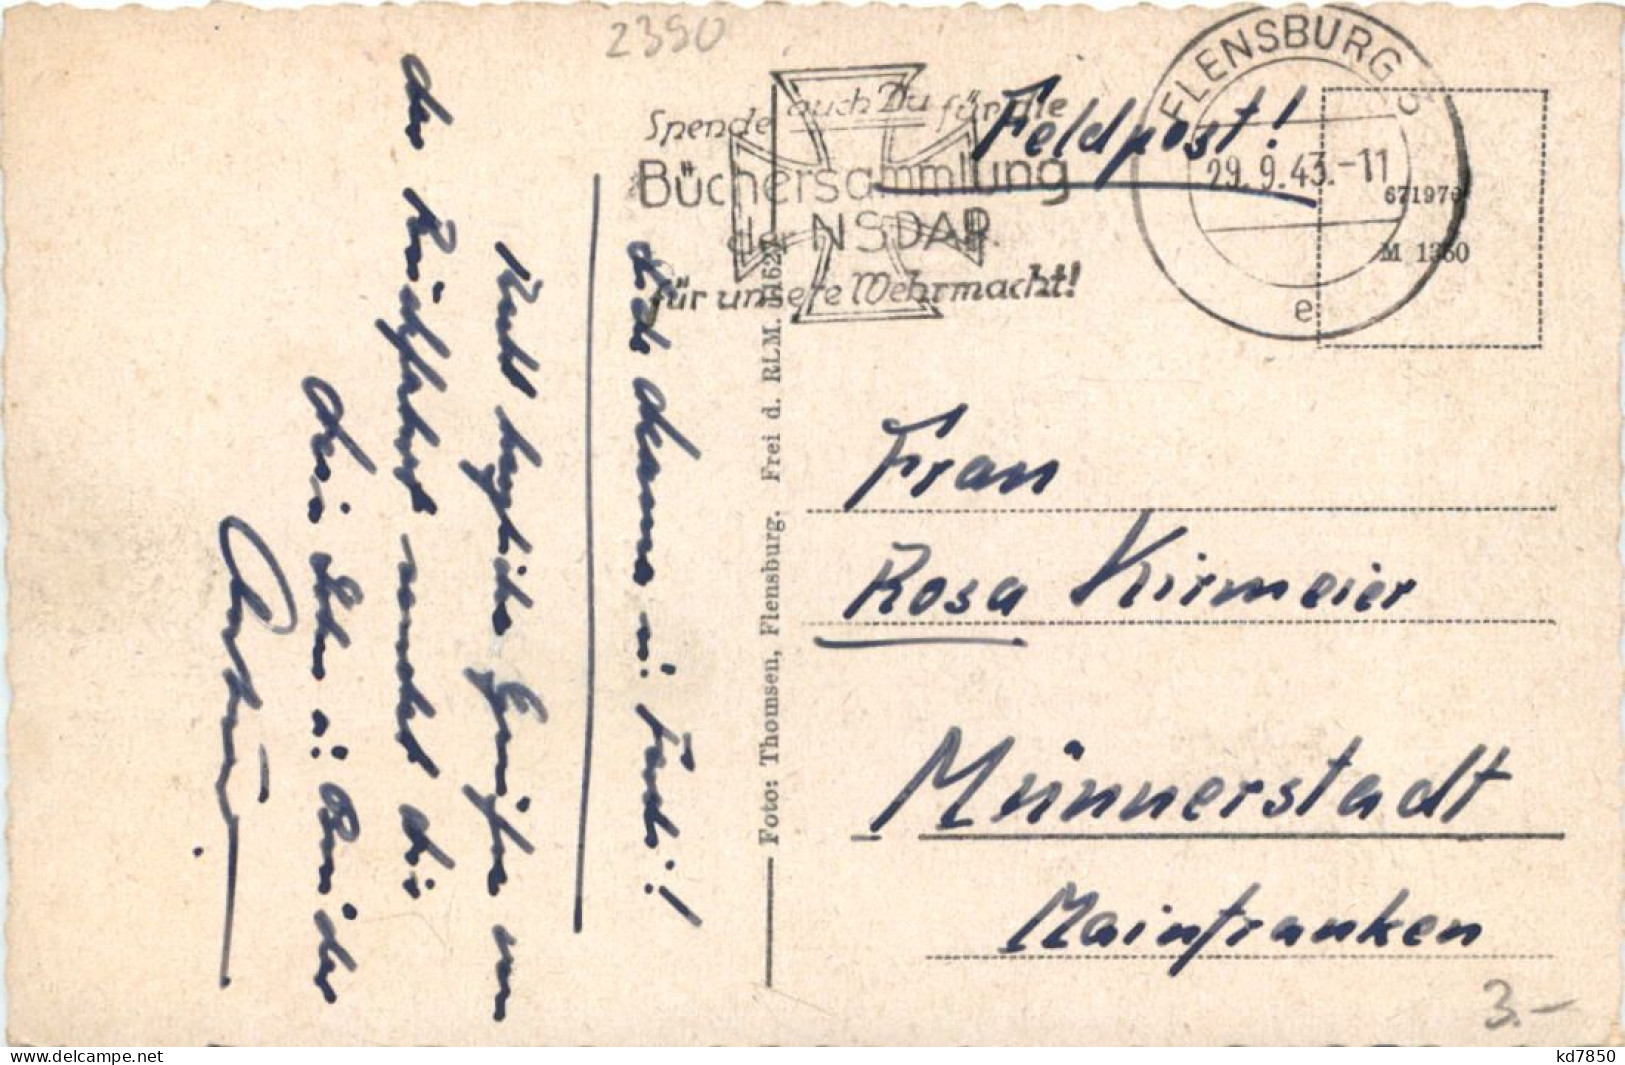 2350
Spende auch Du für die
Büchersammlung
der NSDAP.
für unsere Wehrmacht!
FLENSBURG
29.9.43.-11
e
Feldpost!
M 1350
Frau
Rosa Kirmeier
Münnerstadt
Mainfranken
Foto: Thomsen, Flensburg. Frei d. RLM.
Recht herzliche Grüße von
der Rückfahrt sendet dir
dein Sohn u. Bruder
Arthur.
3.-
kd7850